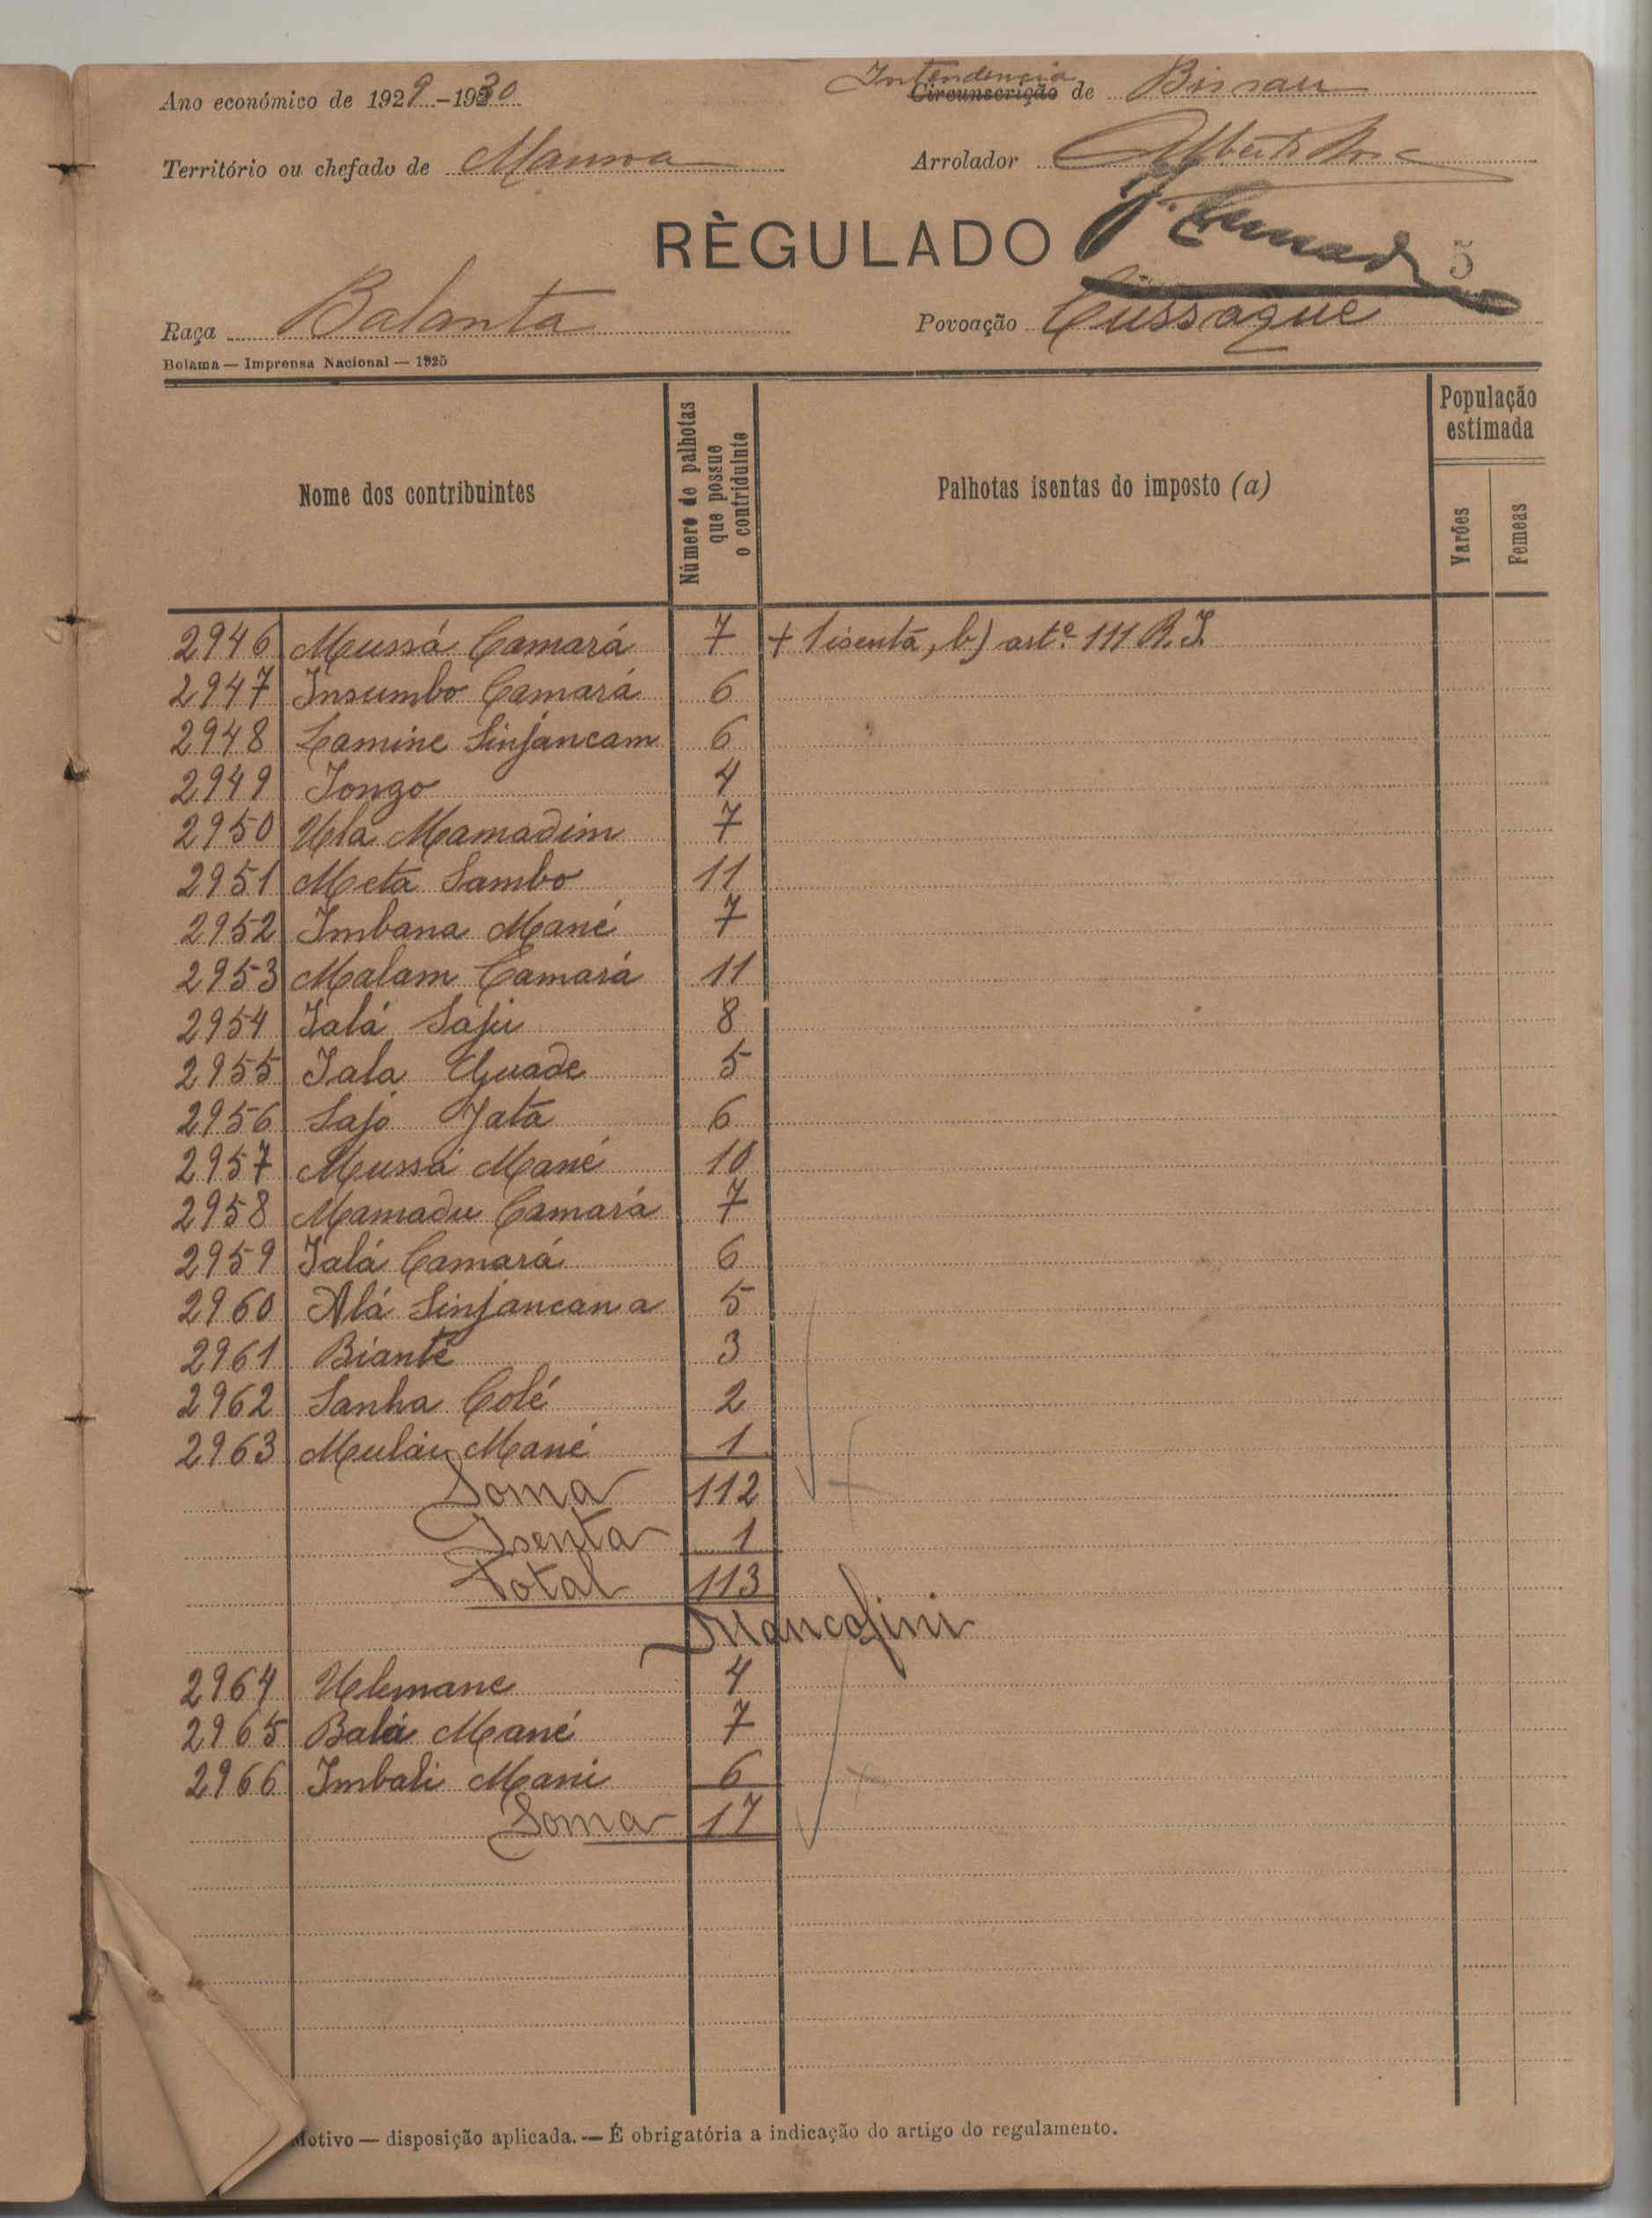 Ano económico de 1929-1930
Intendencia
Circunscrição de Bissau
Território ou chefado de Mansoa
Arrolador Alberto
RÈGULADO
5
Raça Balanta
Povoação Cussaque
Bolama — Imprensa Nacional — 1925
Nome dos contribuintes
Número de palhotas que possue o contriduinte
Palhotas isentas do imposto (a)
População estimada
Varões
Femeas
2946 Mussá Camará 7 + 1 isenta, b) artº 111 R. I.
2947 Insumbo Camará 6
2948 Lamine Sinjancam 6
2949 Jongo 4
2950 Ula Mamadim 7
2951 Metá Sambo 11
2952 Imbana Mané 7
2953 Malam Camará 11
2954 Ialá Saju 8
2955 Iala Quade 5
2956 Sajó Jatá 6
2957 Mussá Mané 10
2958 Mamadu Camará 7
2959 Ialá Camará 6
2960 Alá Sinjancana 5
2961 Bianté 3
2962 Sanha Colé 2
2963 Mulai Mané 1
Soma 112
Isenta 1
Total 113
Mancofini
2964 Ulemane 4
2965 Balá Mané 7
2966 Imbali Mani 6
Soma 17
Motivo — disposição aplicada. — É obrigatória a indicação do artigo do regulamento.